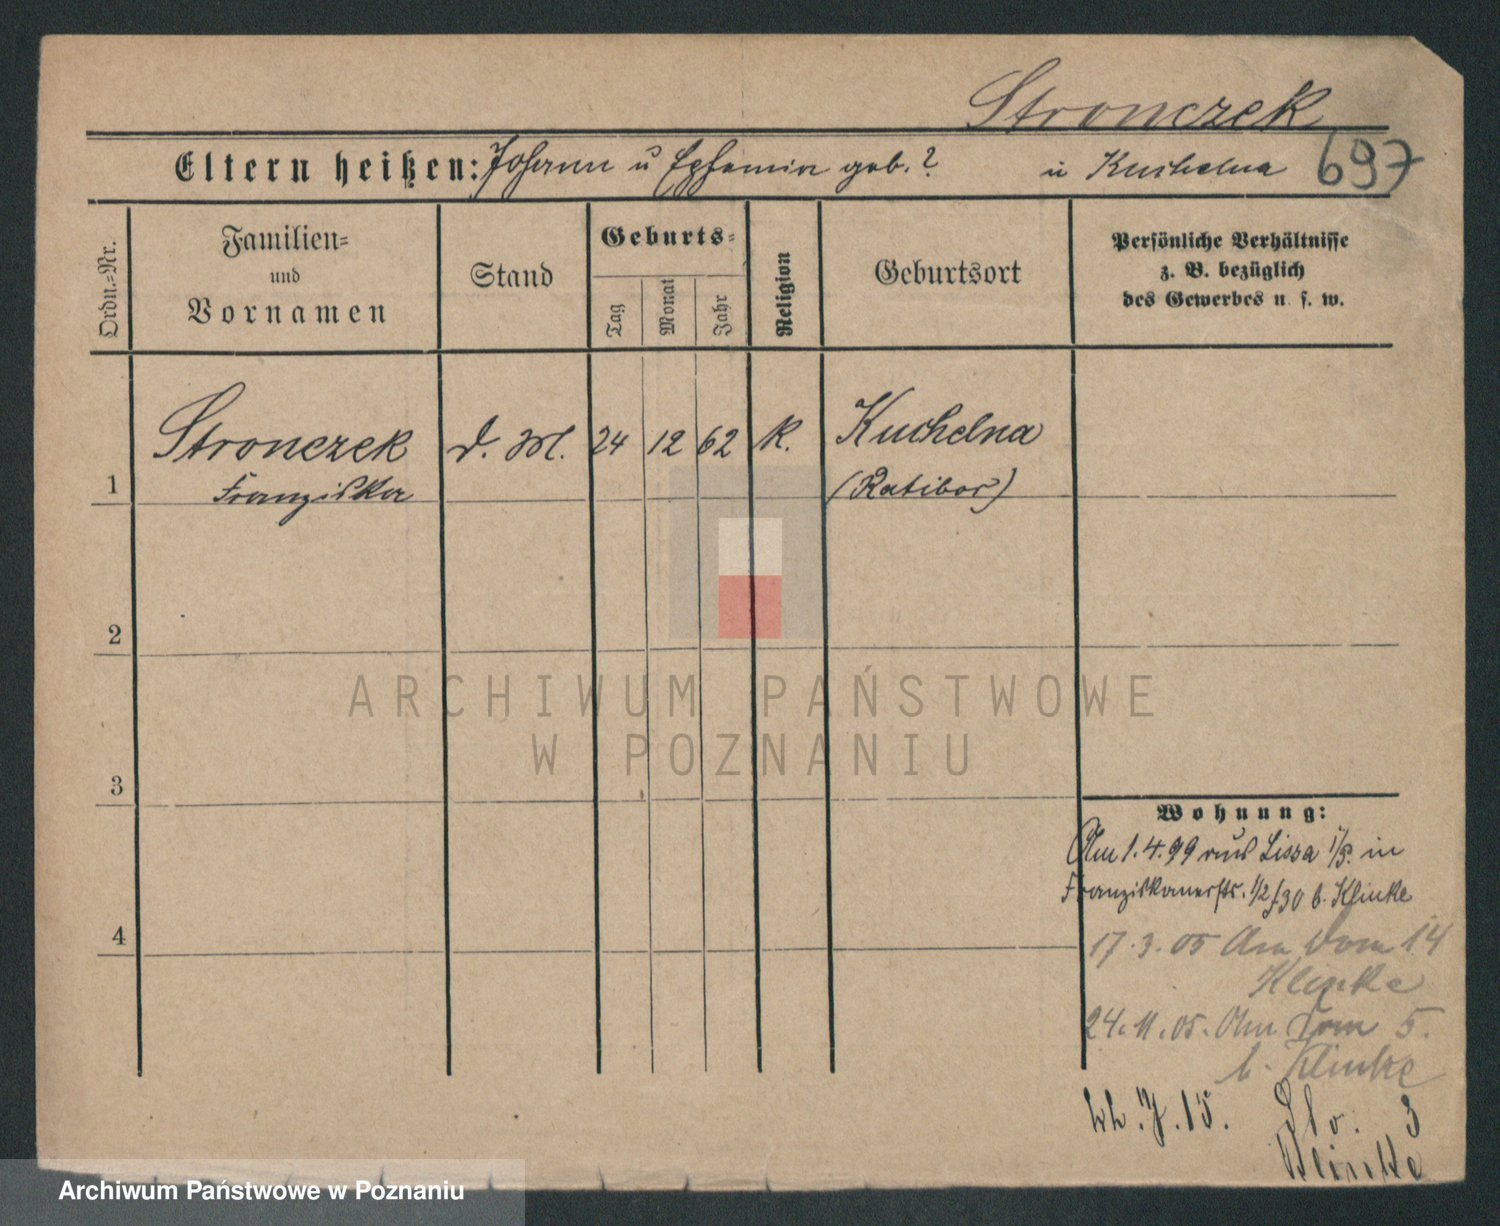 Stronczek
Eltern heißen: Johann u Eufemia geb. ? in Kuchelna 697
Ordn.=Nr.
Familien=
und
Vornamen
Stand
Geburts=
Tag
Monat
Jahr
Religion
Geburtsort
Persönliche Verhältnisse
z. B. bezüglich
des Gewerbes u. s. w.
1
Stronczek
Franziska
d. M.
24
12
62
k.
Kuchelna
(Ratibor)
2
3
4
Wohnung:
Am 1.4.99 aus Lissa i/P. in
Franziskanerstr. 1/2 b. Klinke
17.3.05 Am Dom 14
Klinke
24.11.05. Am Dom 5.
b. Klinke
J. 15. 3
Klinke
ARCHIWUM PAŃSTWOWE
W POZNANIU
Archiwum Państwowe w Poznaniu